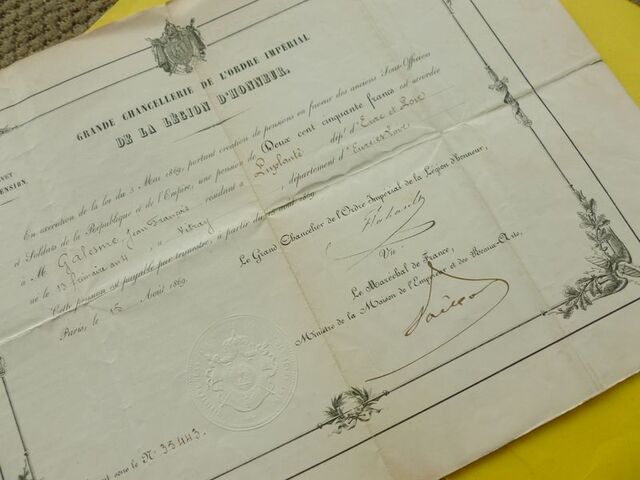 GRANDE CHANCELLERIE DE L'ORDRE IMPÉRIAL
DE LA LÉGION D'HONNEUR.
VET
ENSION
En exécution de la loi du 5 Mai 1869, portant création de pensions en faveur des anciens Sous-Officiers
et Soldats de la République et de l'Empire, une pension de Deux cent cinquante francs est accordée
à M. Galerne, Jean François résidant à Luplanté dépt d'Eure et Loir
né le 13 à Vitray, département d'Eure et Loir
Cette pension est payable par trimestre, à partir du août 1869.
Paris, le 15 Août 1869.
Le Grand Chancelier de l'Ordre Impérial de la Légion d'honneur,
Flahault
Vu:
Le Maréchal de France,
Ministre de la Maison de l'Empereur et des Beaux-Arts,
Vaillant
sous le N° 35443.